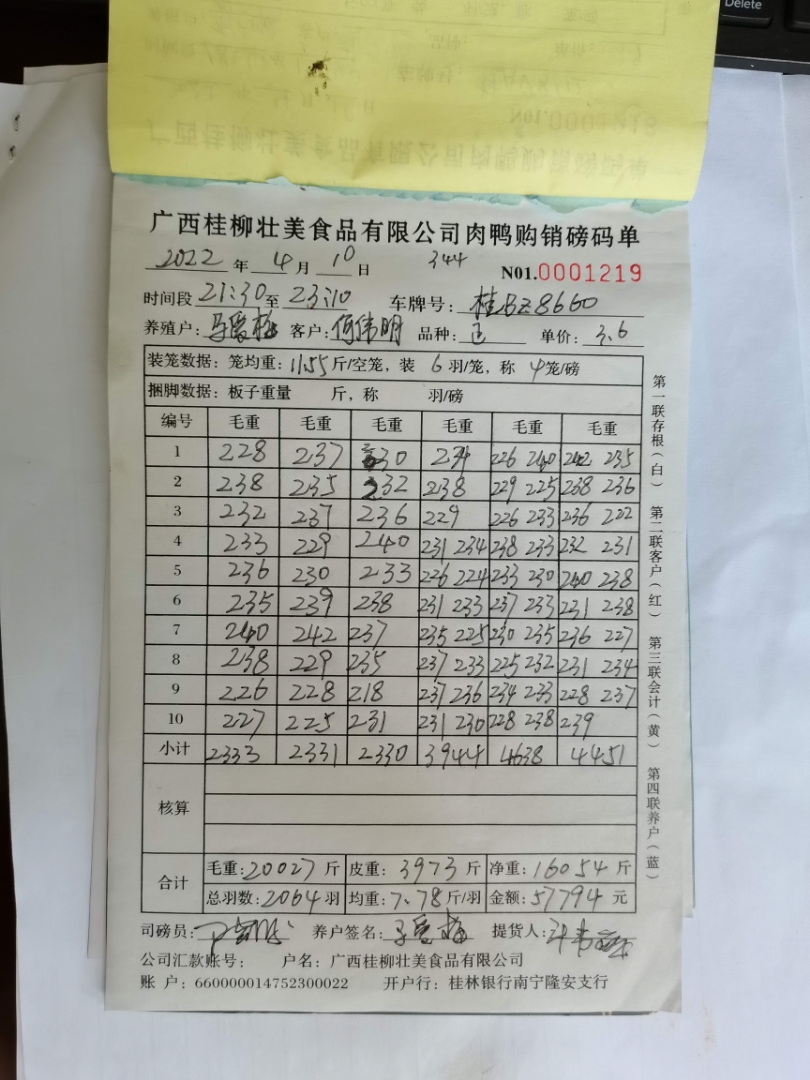 Delete
广西桂柳壮美食品有限公司肉鸭购销磅码单
2022 年 4 月 10 日 344 N01.0001219
时间段 21:30 至 23:10 车牌号: 桂BZ8660
养殖户: 马爱梅 客户: 何伟明 品种: 单价: 3.6
装笼数据: 笼均重: 11.55 斤/空笼, 装 6 羽/笼, 称 4 笼/磅
捆脚数据: 板子重量 斤, 称 羽/磅
编号 毛重 毛重 毛重 毛重 毛重 毛重
1 228 237 230 234 226 240 242 235
2 238 235 232 238 229 225 238 236
3 232 237 236 229 226 233 236 222
4 233 229 240 231 234 238 233 232 231
5 236 230 233 226 224 233 230 240 238
6 235 239 238 231 233 237 233 231 238
7 240 242 237 235 225 230 235 236 227
8 238 229 235 237 233 225 232 231 234
9 226 228 218 237 236 234 233 228 237
10 227 225 231 231 230 228 238 239
小计 2333 2331 2330 3944 4638 4451
核算
合计
毛重: 20027 斤 皮重: 3973 斤 净重: 16054 斤
总羽数: 2064 羽 均重: 7.78 斤/羽 金额: 57794 元
司磅员: 养户签名: 马爱梅 提货人:
公司汇款账号: 户名: 广西桂柳壮美食品有限公司
账 户: 660000014752300022 开户行: 桂林银行南宁隆安支行
第一联存根(白) 第二联客户(红) 第三联会计(黄) 第四联养户(蓝)